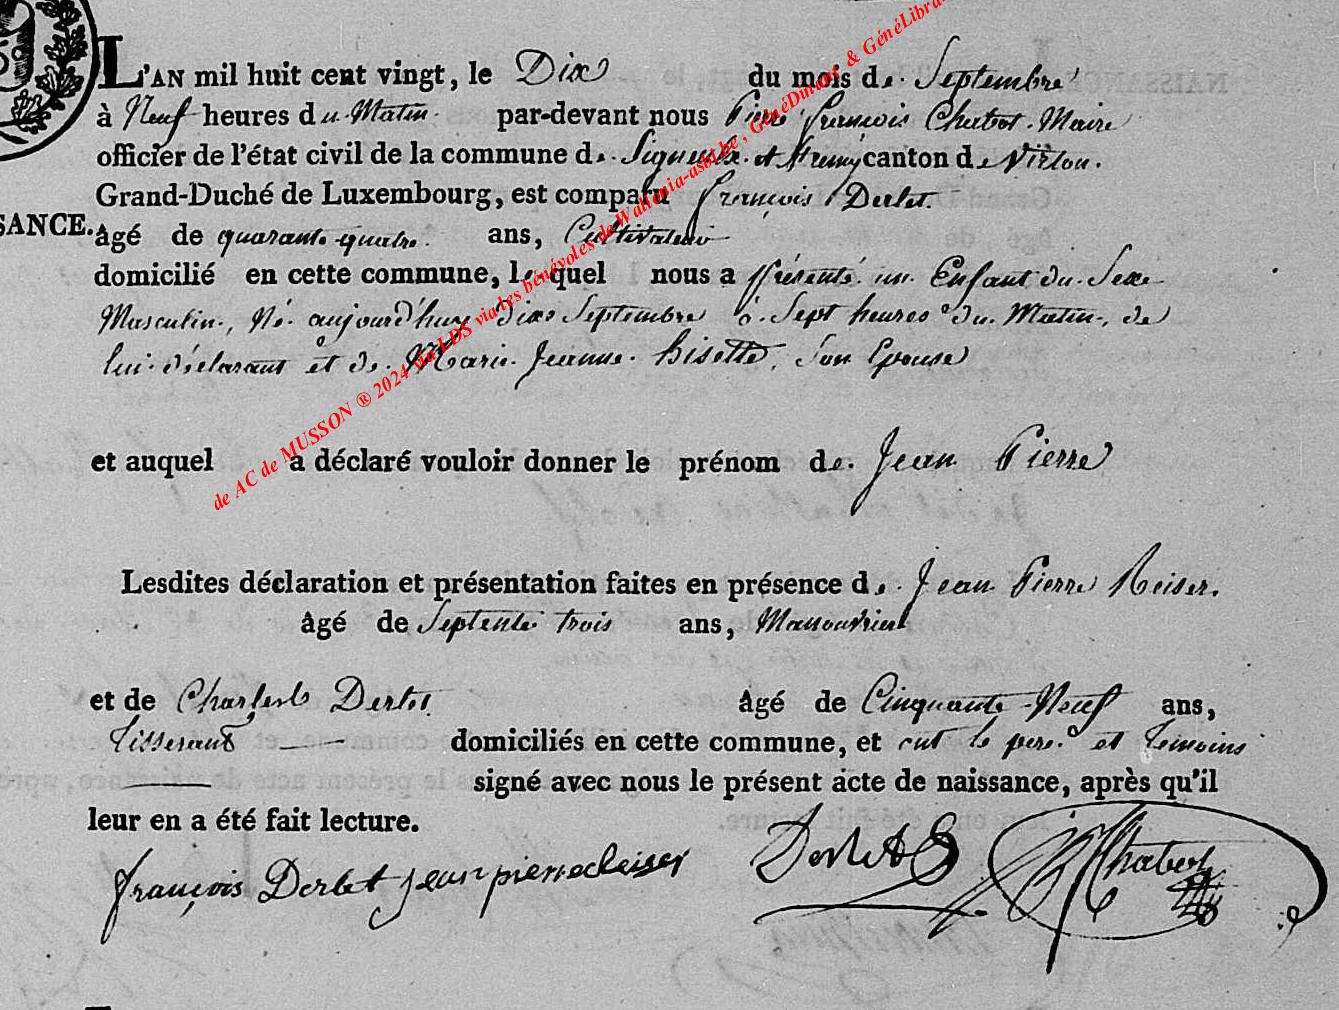 L'AN mil huit cent vingt, le Dix du mois de Septembre
à Neuf heures du Matin par-devant nous Pierre françois Chabot Maire
officier de l'état civil de la commune de Signeulx et canton de Virton.
Grand-Duché de Luxembourg, est comparu françois Derlet.
SANCE. âgé de quarante quatre ans, Cultivateur
domicilié en cette commune, lequel nous a présenté un Enfant du Sexe
Masculin, Né aujourd'huy dix Septembre à Sept heures du Matin, de
lui déclarant et de Marie Jeanne Lisette, son Epouse
et auquel a déclaré vouloir donner le prénom de Jean Pierre
Lesdites déclaration et présentation faites en présence de Jean Pierre Reiser.
âgé de Septente trois ans, Manouvrier
et de Charles Derlet âgé de Cinquante-Neuf ans,
Tisserant domiciliés en cette commune, et ont le pere et temoins
signé avec nous le présent acte de naissance, après qu'il
leur en a été fait lecture.
françois Derlet jean pierre Derlet Chabot
de AC de MUSSON ® 2024 via LDS via les bénévoles de Wallonia-asbl.be, GénéDinant & GénéLibra